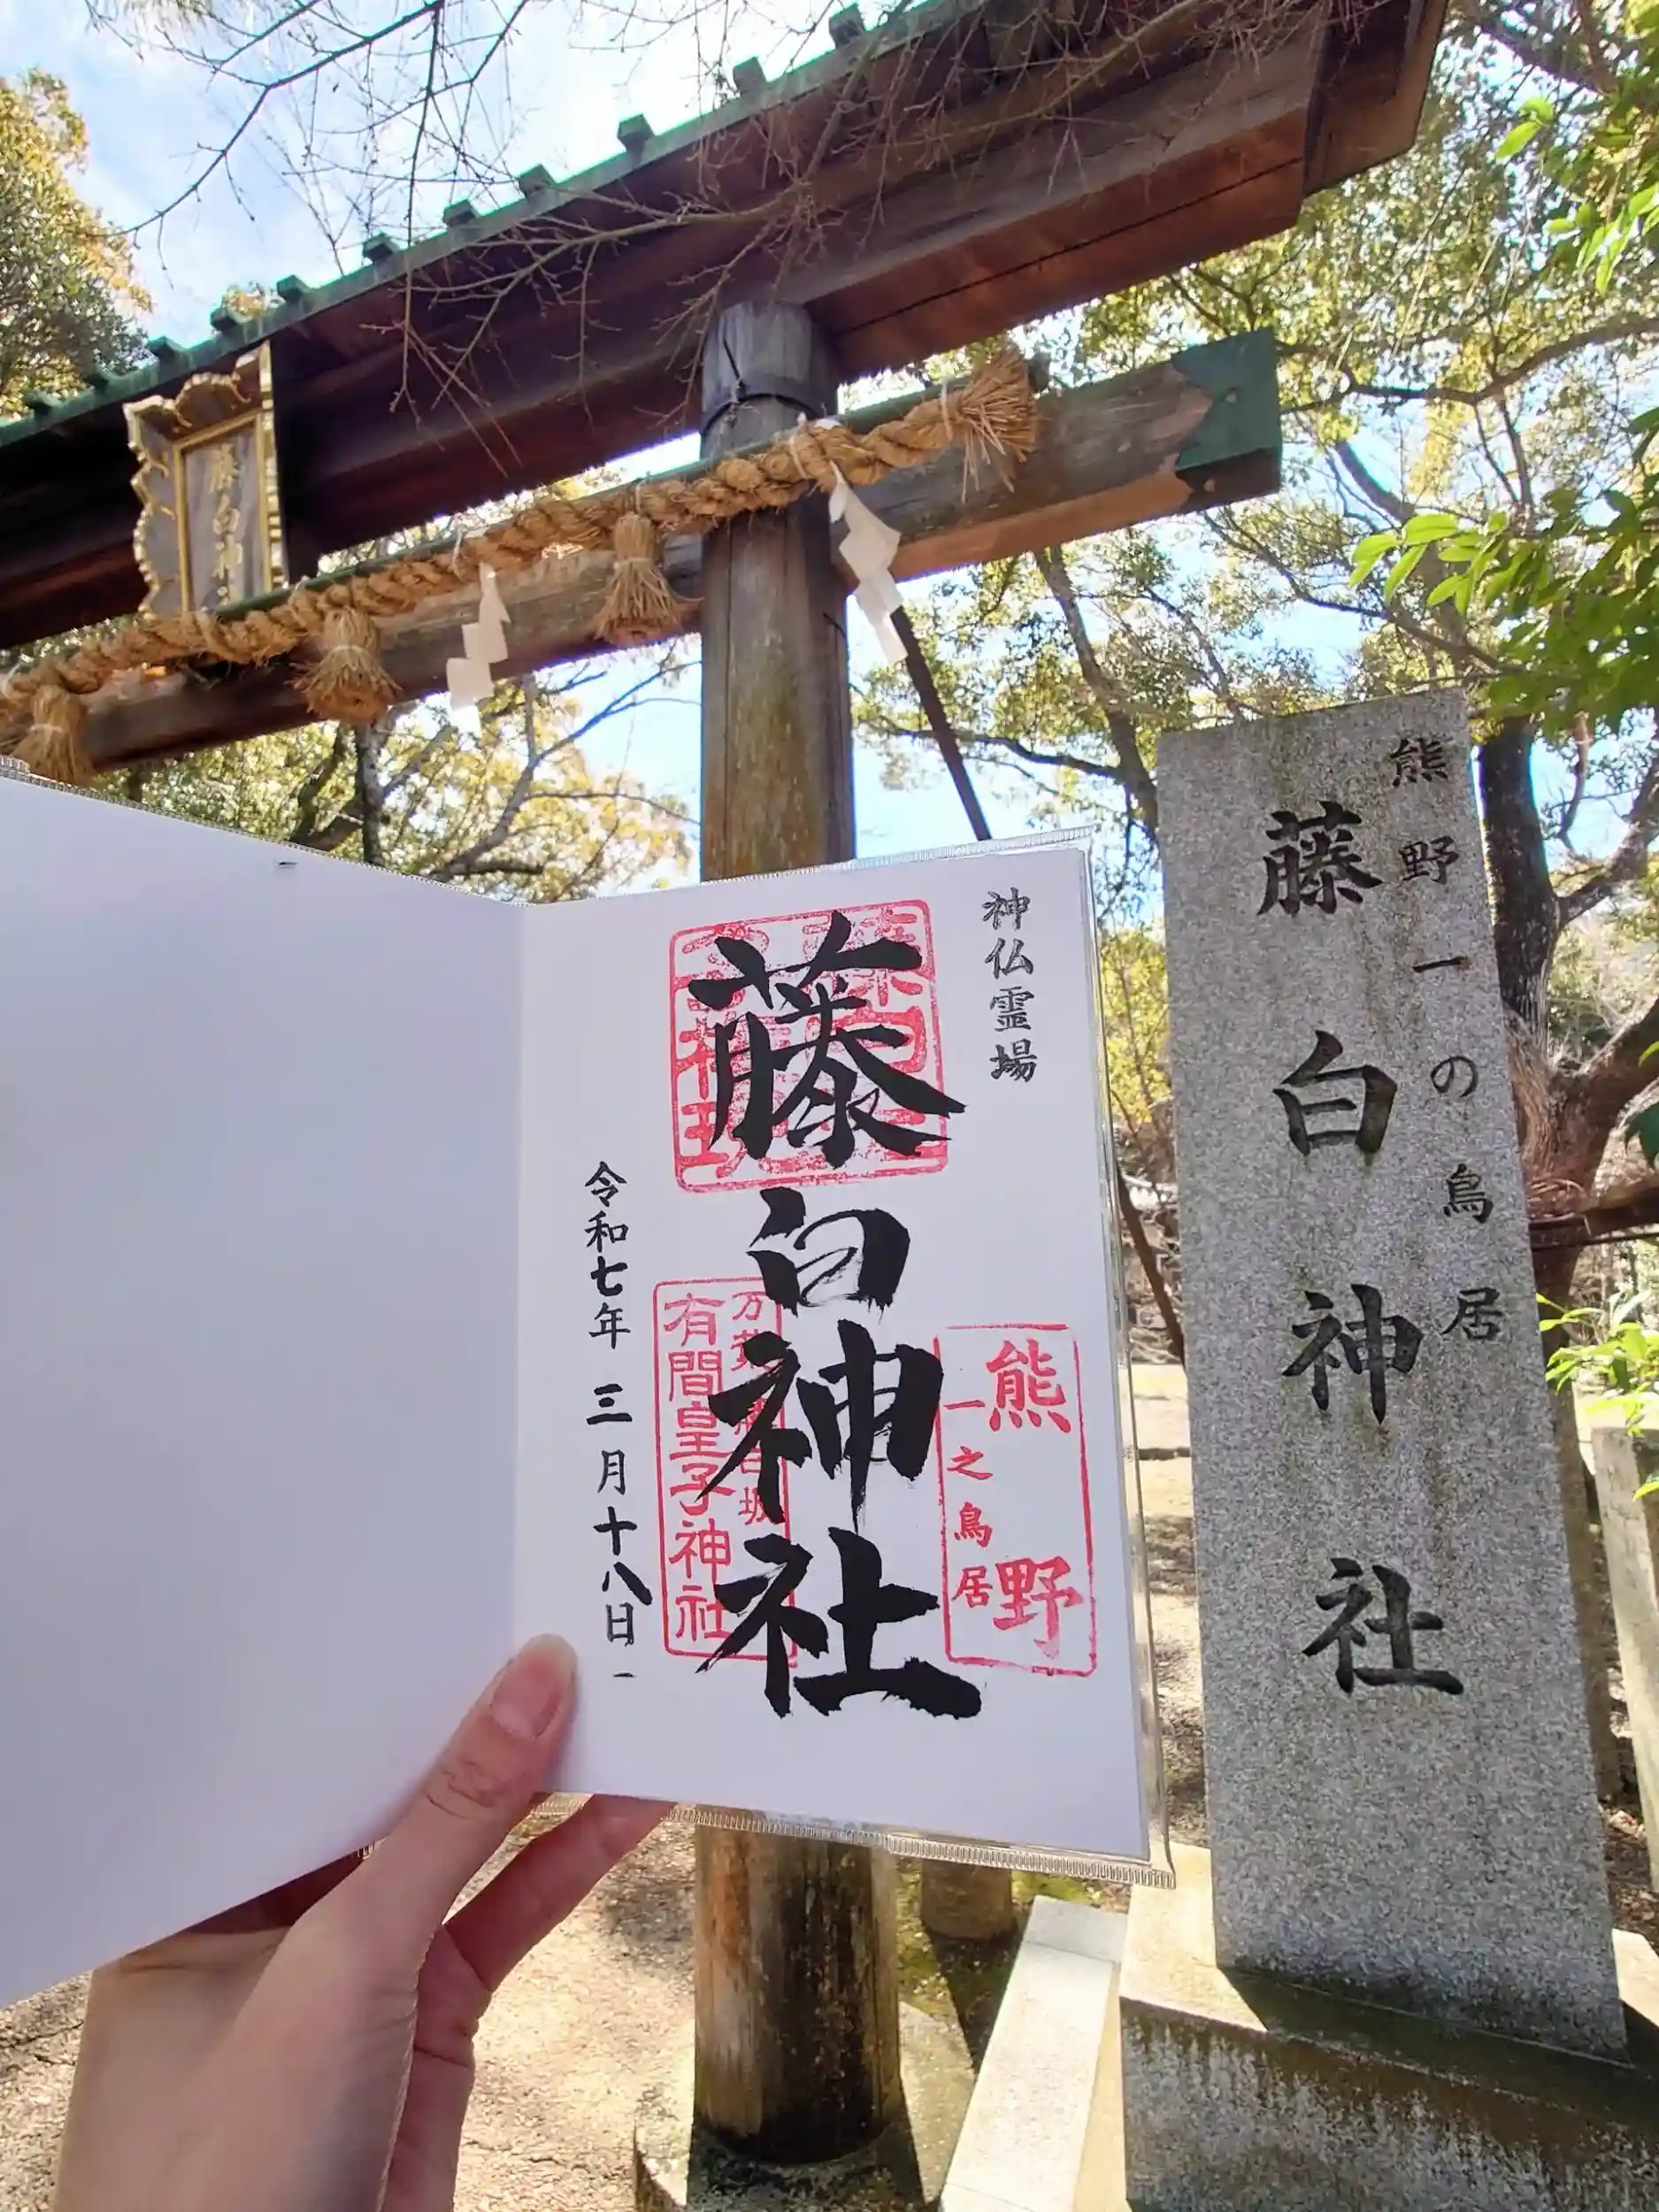 藤白神
熊野一の鳥居
藤白神社
神仏霊場
藤白神社
熊野
一之鳥居
有間皇子神社
令和七年 三月十八日